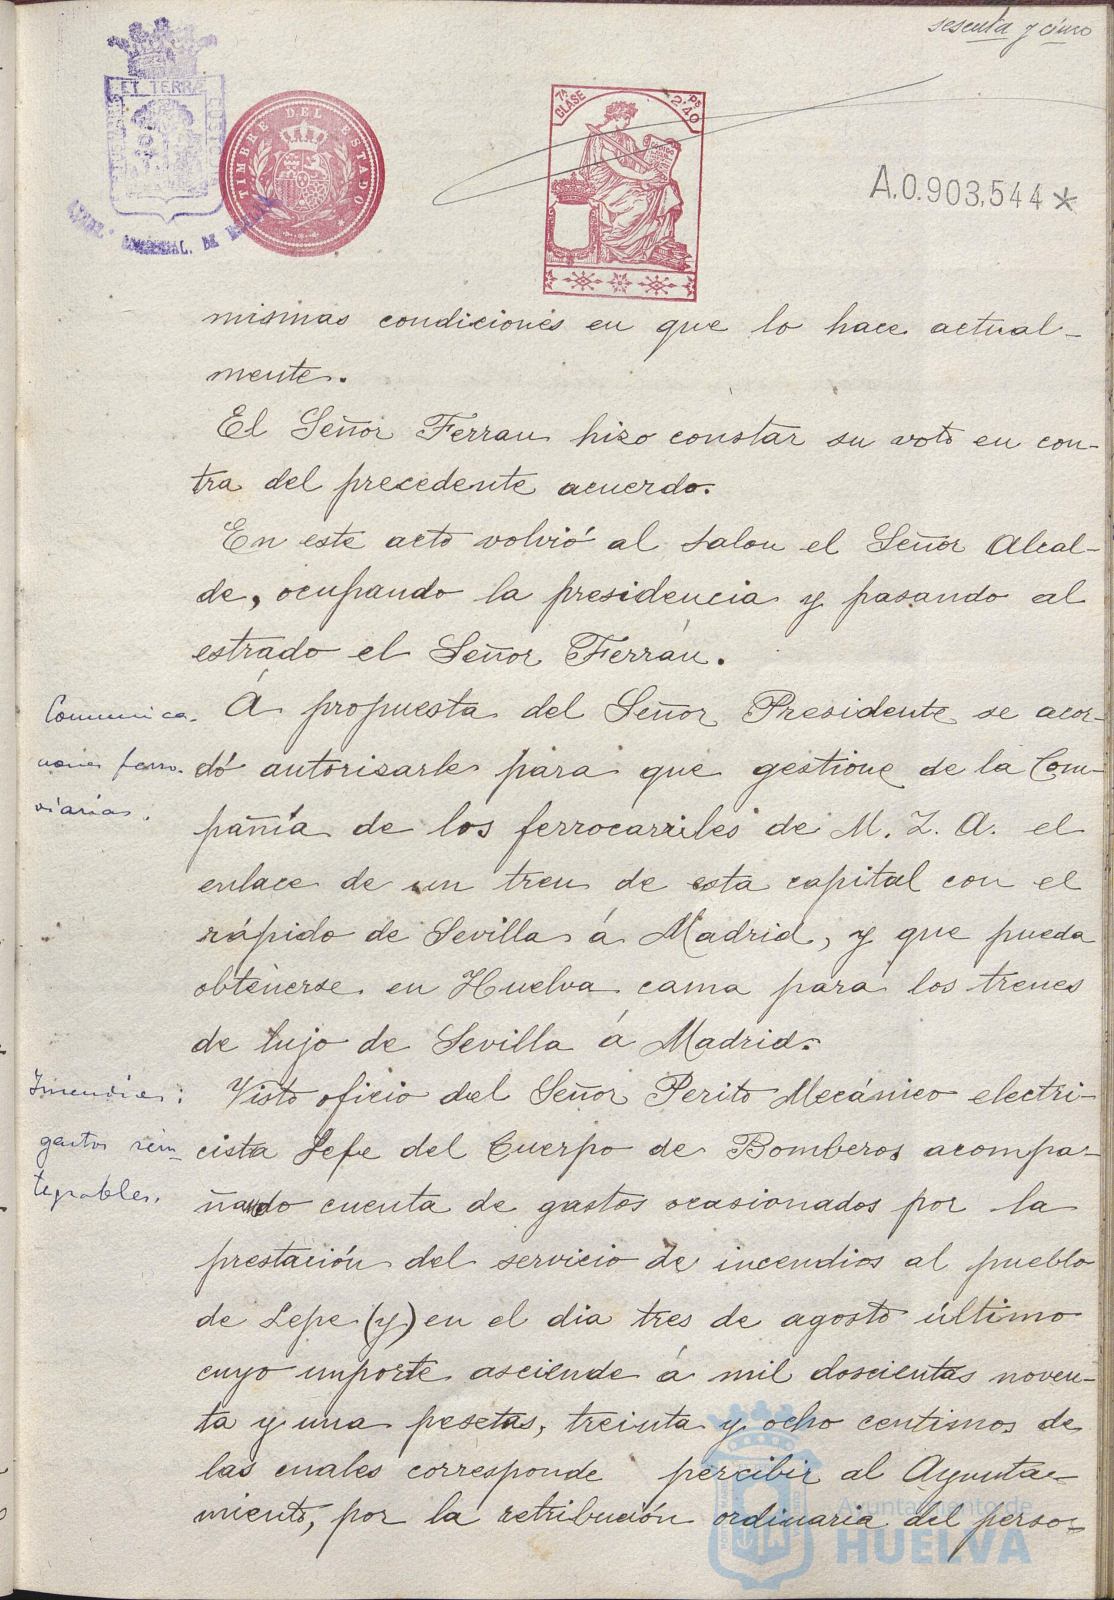 sesenta y cinco
ET TERRÆ
TIMBRE DEL ESTADO
7ª CLASE
2'40 PS
A.0.903,544*
mismas condiciones en que lo hace actual-
mente.
El Señor Ferran hizo constar su voto en con-
tra del precedente acuerdo.
En este acto volvió al salon el Señor Alcal-
de, ocupando la presidencia y pasando al
estrado el Señor Ferrán.
Comunica-
ciones ferro-
viarias.
Á propuesta del Señor Presidente se acor-
dó autorisarle para que gestione de la Com-
pañía de los ferrocarriles de M. Z. A. el
enlace de un tren de esta capital con el
rápido de Sevilla á Madrid, y que pueda
obtenerse en Huelva cama para los trenes
de lujo de Sevilla á Madrid.
Incendios:
gastos rein-
tegrables.
Visto oficio del Señor Perito Mecánico electri-
cista Jefe del Cuerpo de Bomberos acompa-
ñando cuenta de gastos ocasionados por la
prestación del servicio de incendios al pueblo
de Lepe (y) en el dia tres de agosto último
cuyo importe asciende á mil doscientas noven-
ta y una pesetas, treinta y ocho centimos de
las cuales corresponde percibir al Ayunta-
miento, por la retribución ordinaria del perso-
Ayuntamiento de
HUELVA